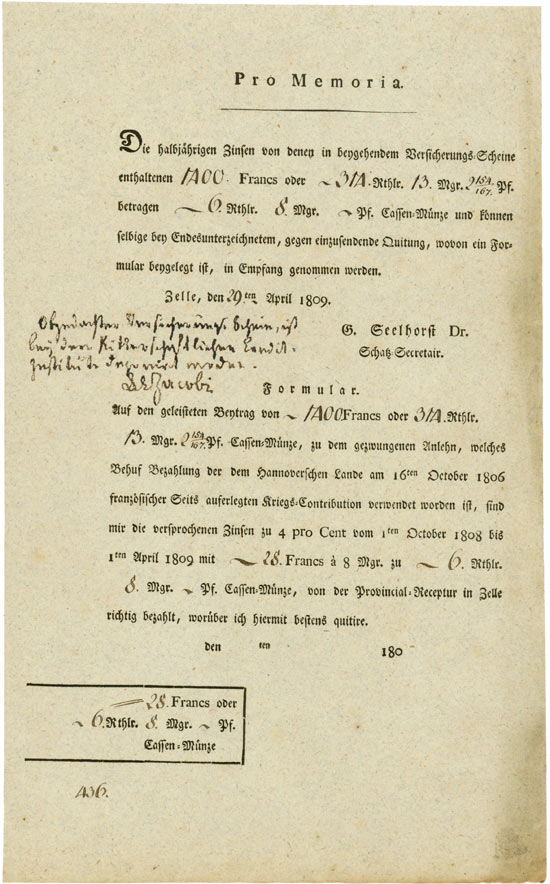 Pro Memoria.
Die halbjährigen Zinsen von denen in beygehendem Versicherungs-Scheine
enthaltenen 1400. Francs oder ~ 314. Rthlr. 13. Mgr. 2 154/167. Pf.
betragen ~ 6. Rthlr. 8. Mgr. ~ Pf. Cassen-Münze und können
selbige bey Endesunterzeichnetem, gegen einzusendende Quitung, wovon ein For-
mular beygelegt ist, in Empfang genommen werden.
Zelle, den 29ten April 1809.
G. Seelhorst Dr.
Schatz-Secretair.
Obgedachter Versicherungs Schein, ist
bey dem Ritterschaftlichen Credit-
Institute deponirt worden.
Jacobi
Formular.
Auf den geleisteten Beytrag von ~ 1400 Francs oder 314. Rthlr.
13. Mgr. 2 154/167. Pf. Cassen-Münze, zu dem gezwungenen Anlehn, welches
Behuf Bezahlung der dem Hannoverschen Lande am 16ten October 1806
französischer Seits auferlegten Kriegs-Contribution verwendet worden ist, sind
mir die versprochenen Zinsen zu 4 pro Cent vom 1ten October 1808 bis
1ten April 1809 mit ~ 28. Francs à 8 Mgr. zu ~ 6. Rthlr.
8. Mgr. ~ Pf. Cassen-Münze, von der Provincial-Receptur in Zelle
richtig bezahlt, worüber ich hiermit bestens quitire.
den ten 180
28. Francs oder
~ 6. Rthlr. 8. Mgr. ~ Pf.
Cassen-Münze
436.